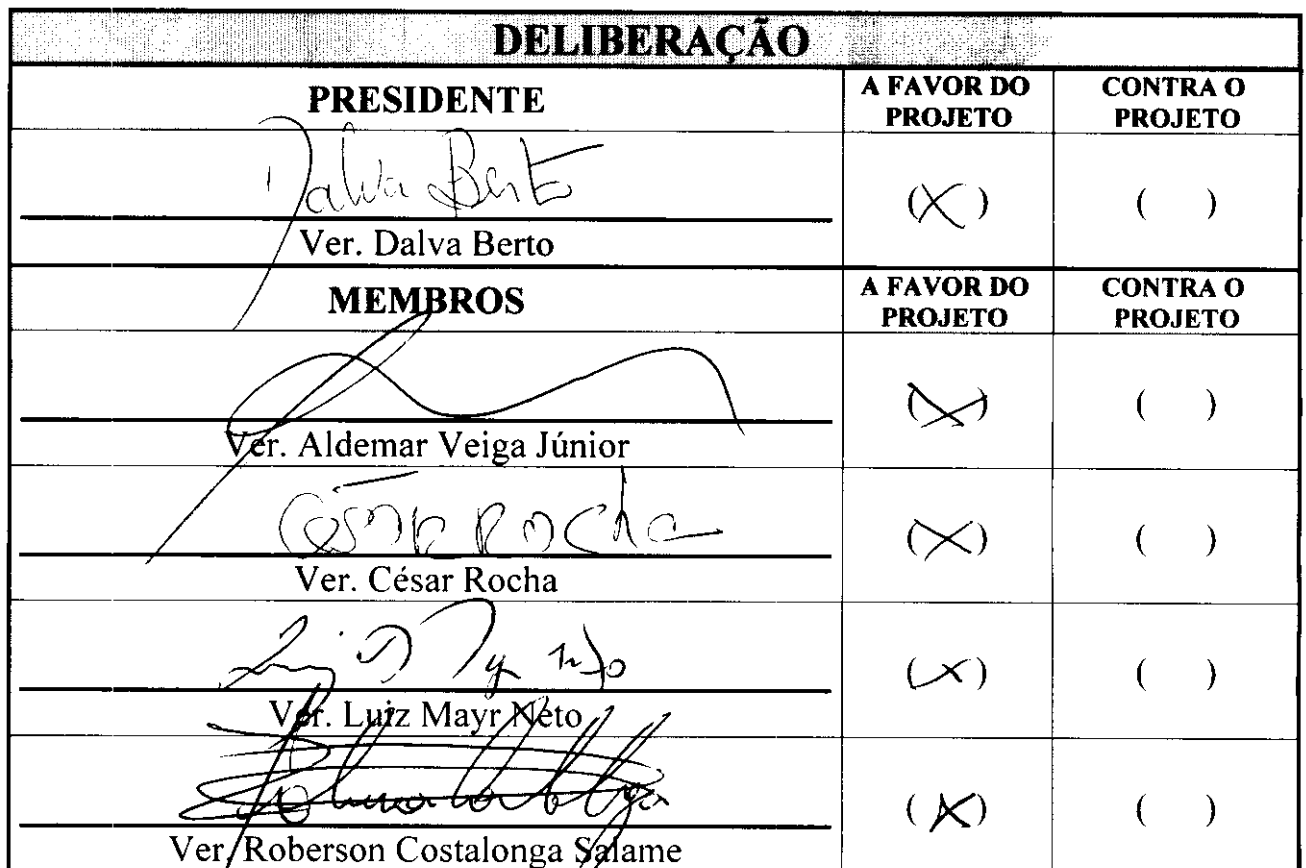 DELIBERAÇÃO
PRESIDENTE
A FAVOR DO
PROJETO
CONTRA O
PROJETO
Dalva Berto
(X) ( )
Ver. Dalva Berto
MEMBROS
A FAVOR DO
PROJETO
CONTRA O
PROJETO
(X) ( )
Ver. Aldemar Veiga Júnior
César Rocha
(X) ( )
Ver. César Rocha
(X) ( )
Ver. Luiz Mayr Neto
(X) ( )
Ver. Roberson Costalonga Salame